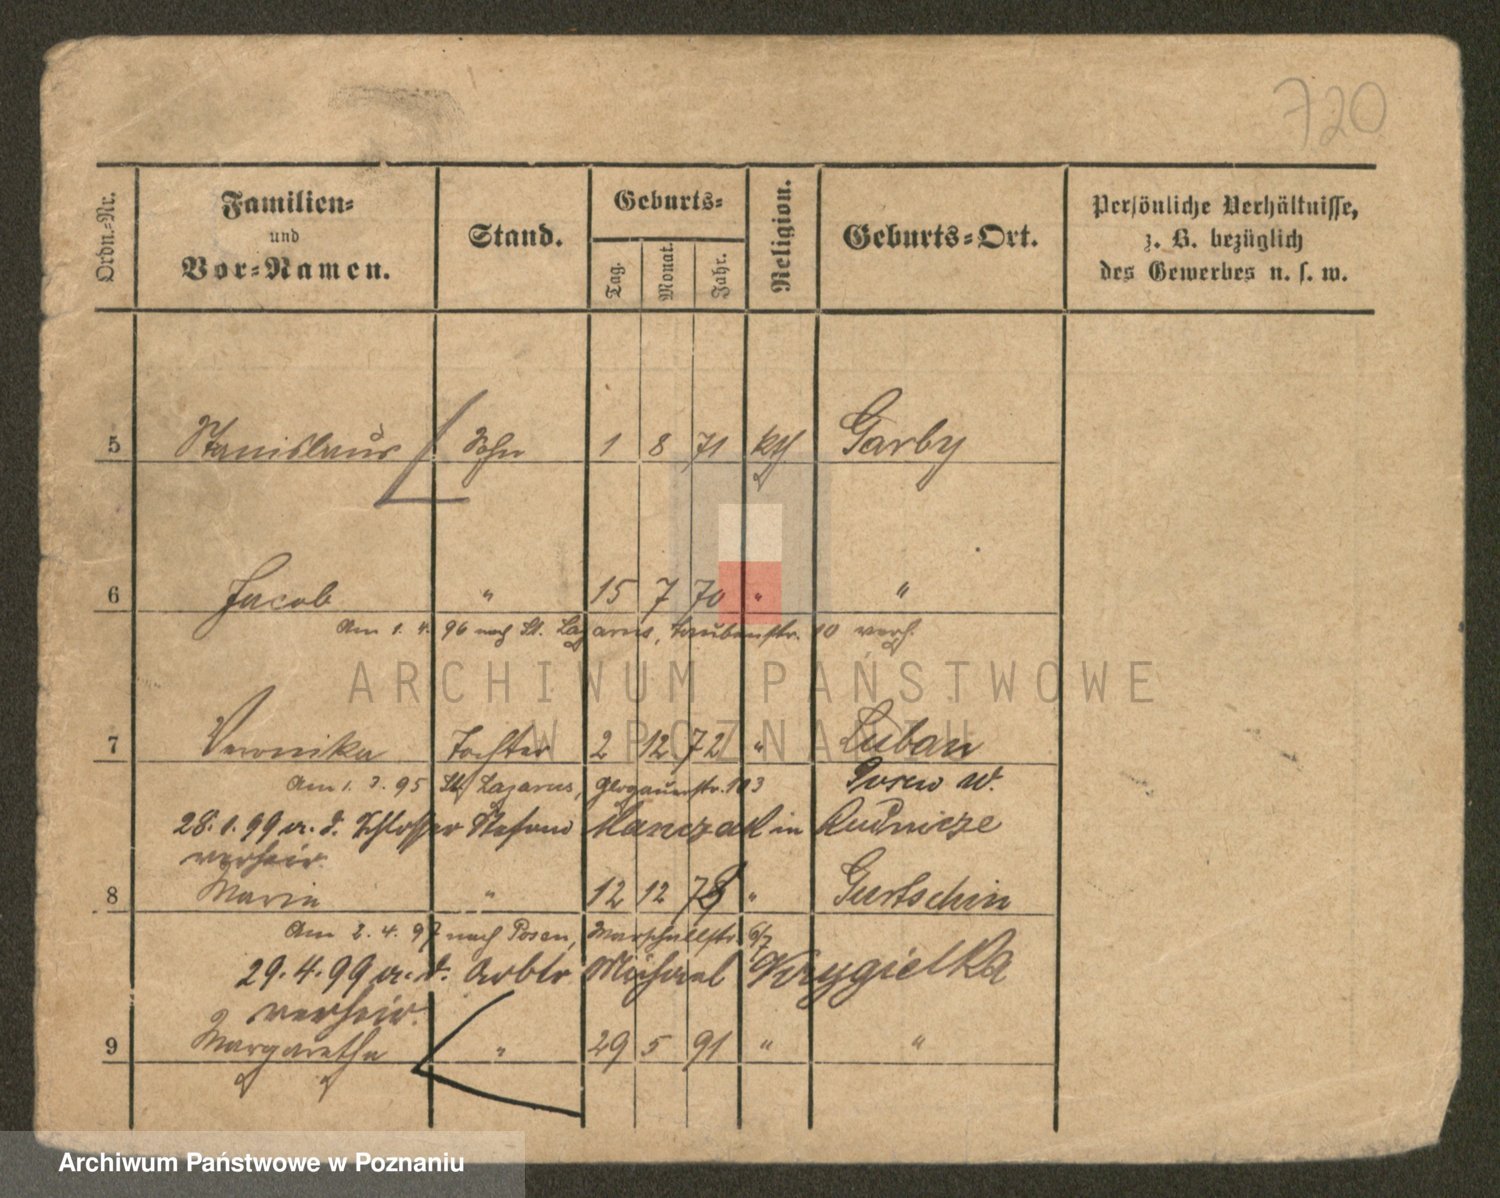 720
Ordn.-Nr.
Familien-
und
Vor-Namen.
Stand.
Geburts-
Tag.
Monat.
Jahr.
Religion.
Geburts-Ort.
Persönliche Verhältnisse,
z. B. bezüglich
des Gewerbes u. s. w.
5 Stanislaus Sohn 1 8 71 kth Garby
6 Jacob " 15 7 70 " "
Am 1. 4. 96 nach St. Lazarus, Taubenstr. 10 verh.
ARCHIWUM PAŃSTWOWE
W POZNANIU
7 Veronika Tochter 2 12 72 " Luban
Am 1. 3. 95 St. Lazarus, Glogauerstr. 103 Posen W.
28. 1. 99 m. d. Schlosser Stefan Manczak in Rudnicze
verheir.
8 Maria " 12 12 78 " Gurtschin
Am 2. 4. 97 nach Posen, Marschallstr 6/7
29. 4. 99 m. d. Arbtr Michael Krygielka
verheir.
9 Margaretha " 29 5 91 " "
Archiwum Państwowe w Poznaniu